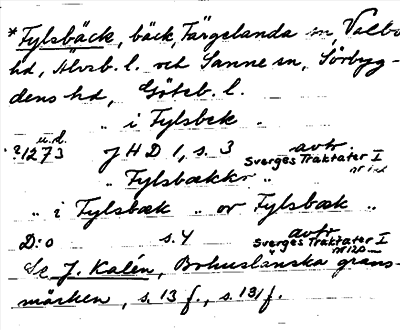 *Fylsbäck, bäck, Färgelanda sn, Valbo
hd, Älvsb. l. och Sanne sn, Sörbyg-
dens hd, Göteb. l.
" i Fylsbek "
u.d.
?1273 JHD 1, s. 3 avtr. Sverges Traktater I
" Fylsbækkr "
" i Fylsbæk " or Fylsbæk "
D:o s. 4 avtr. Sverges Traktater I
nr 120
Se J. Kalén, Bohuslänska gräns-
märken, s. 13 f., s. 131 f.